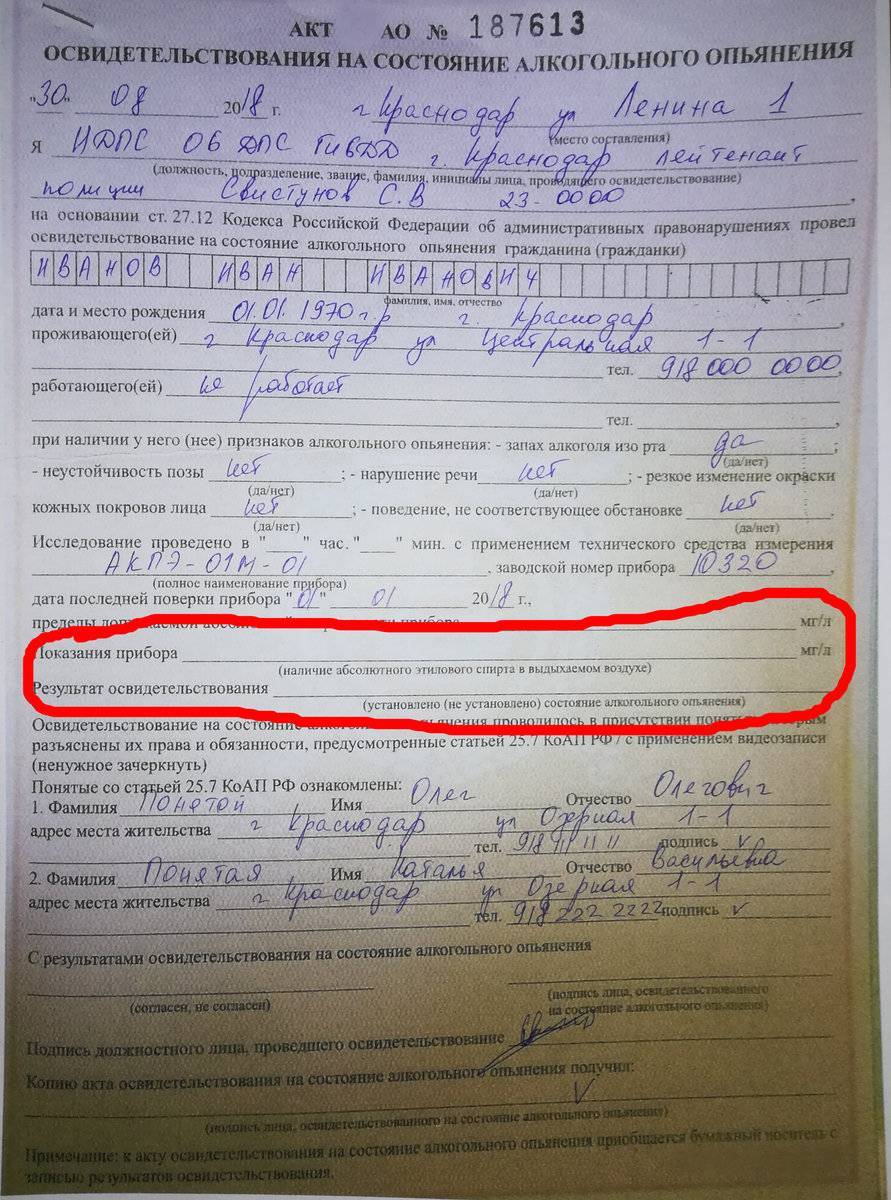 АКТ АО № 187613
ОСВИДЕТЕЛЬСТВОВАНИЯ НА СОСТОЯНИЕ АЛКОГОЛЬНОГО ОПЬЯНЕНИЯ
"30" 08 2018 г. г Краснодар ул Ленина 1
(место составления)
Я ИДПС ОБ ДПС ГИБДД г. Краснодар лейтенант
(должность, подразделение, звание, фамилия, инициалы лица, проводящего освидетельствование)
полиции Свистунов С.В 23-0000 ,
на основании ст. 27.12 Кодекса Российской Федерации об административных правонарушениях провел
освидетельствование на состояние алкогольного опьянения гражданина (гражданки)
ИВАНОВ ИВАН ИВАНОВИЧ
фамилия, имя, отчество
дата и место рождения 01.01.1970 г.р г. Краснодар ,
проживающего(ей) г Краснодар ул Центральная 1-1
тел. 918 000 0000,
работающего(ей) не работает
тел. ,
при наличии у него (нее) признаков алкогольного опьянения: - запах алкоголя изо рта да ;
(да/нет)
- неустойчивость позы нет ; - нарушение речи нет ; - резкое изменение окраски
(да/нет) (да/нет)
кожных покровов лица нет ; - поведение, не соответствующее обстановке нет .
(да/нет) (да/нет)
Исследование проведено в "____" час. "____" мин. с применением технического средства измерения
АКПЭ-01М-01 , заводской номер прибора 10320 ,
(полное наименование прибора)
дата последней поверки прибора "01" 01 2018 г.,
пределы допускаемой абсолютной прибора мг/л
Показания прибора мг/л
(наличие абсолютного этилового спирта в выдыхаемом воздухе)
Результат освидетельствования
(установлено (не установлено) состояние алкогольного опьянения)
Освидетельствование на состояние алкогольного опьянения проводилось в присутствии понятых, которым
разъяснены их права и обязанности, предусмотренные статьей 25.7 КоАП РФ / с применением видеозаписи
(ненужное зачеркнуть)
Понятые со статьей 25.7 КоАП РФ ознакомлены:
1. Фамилия Понятой Имя Олег Отчество Олегович
адрес места жительства г Краснодар ул Озерная 1-1
тел. 918 111 11 11 подпись v
2. Фамилия Понятая Имя Наталья Отчество Васильевна
адрес места жительства г Краснодар ул Озерная 1-1
тел. 918 222 2222 подпись v
С результатами освидетельствования на состояние алкогольного опьянения
(согласен, не согласен) (подпись лица, освидетельствованного
на состояние алкогольного опьянения)
Подпись должностного лица, проведшего освидетельствование
Копию акта освидетельствования на состояние алкогольного опьянения получил:
V
(подпись лица, освидетельствованного на состояние алкогольного опьянения)
Примечание: к акту освидетельствования на состояние алкогольного опьянения приобщается бумажный носитель с
записью результатов освидетельствования.